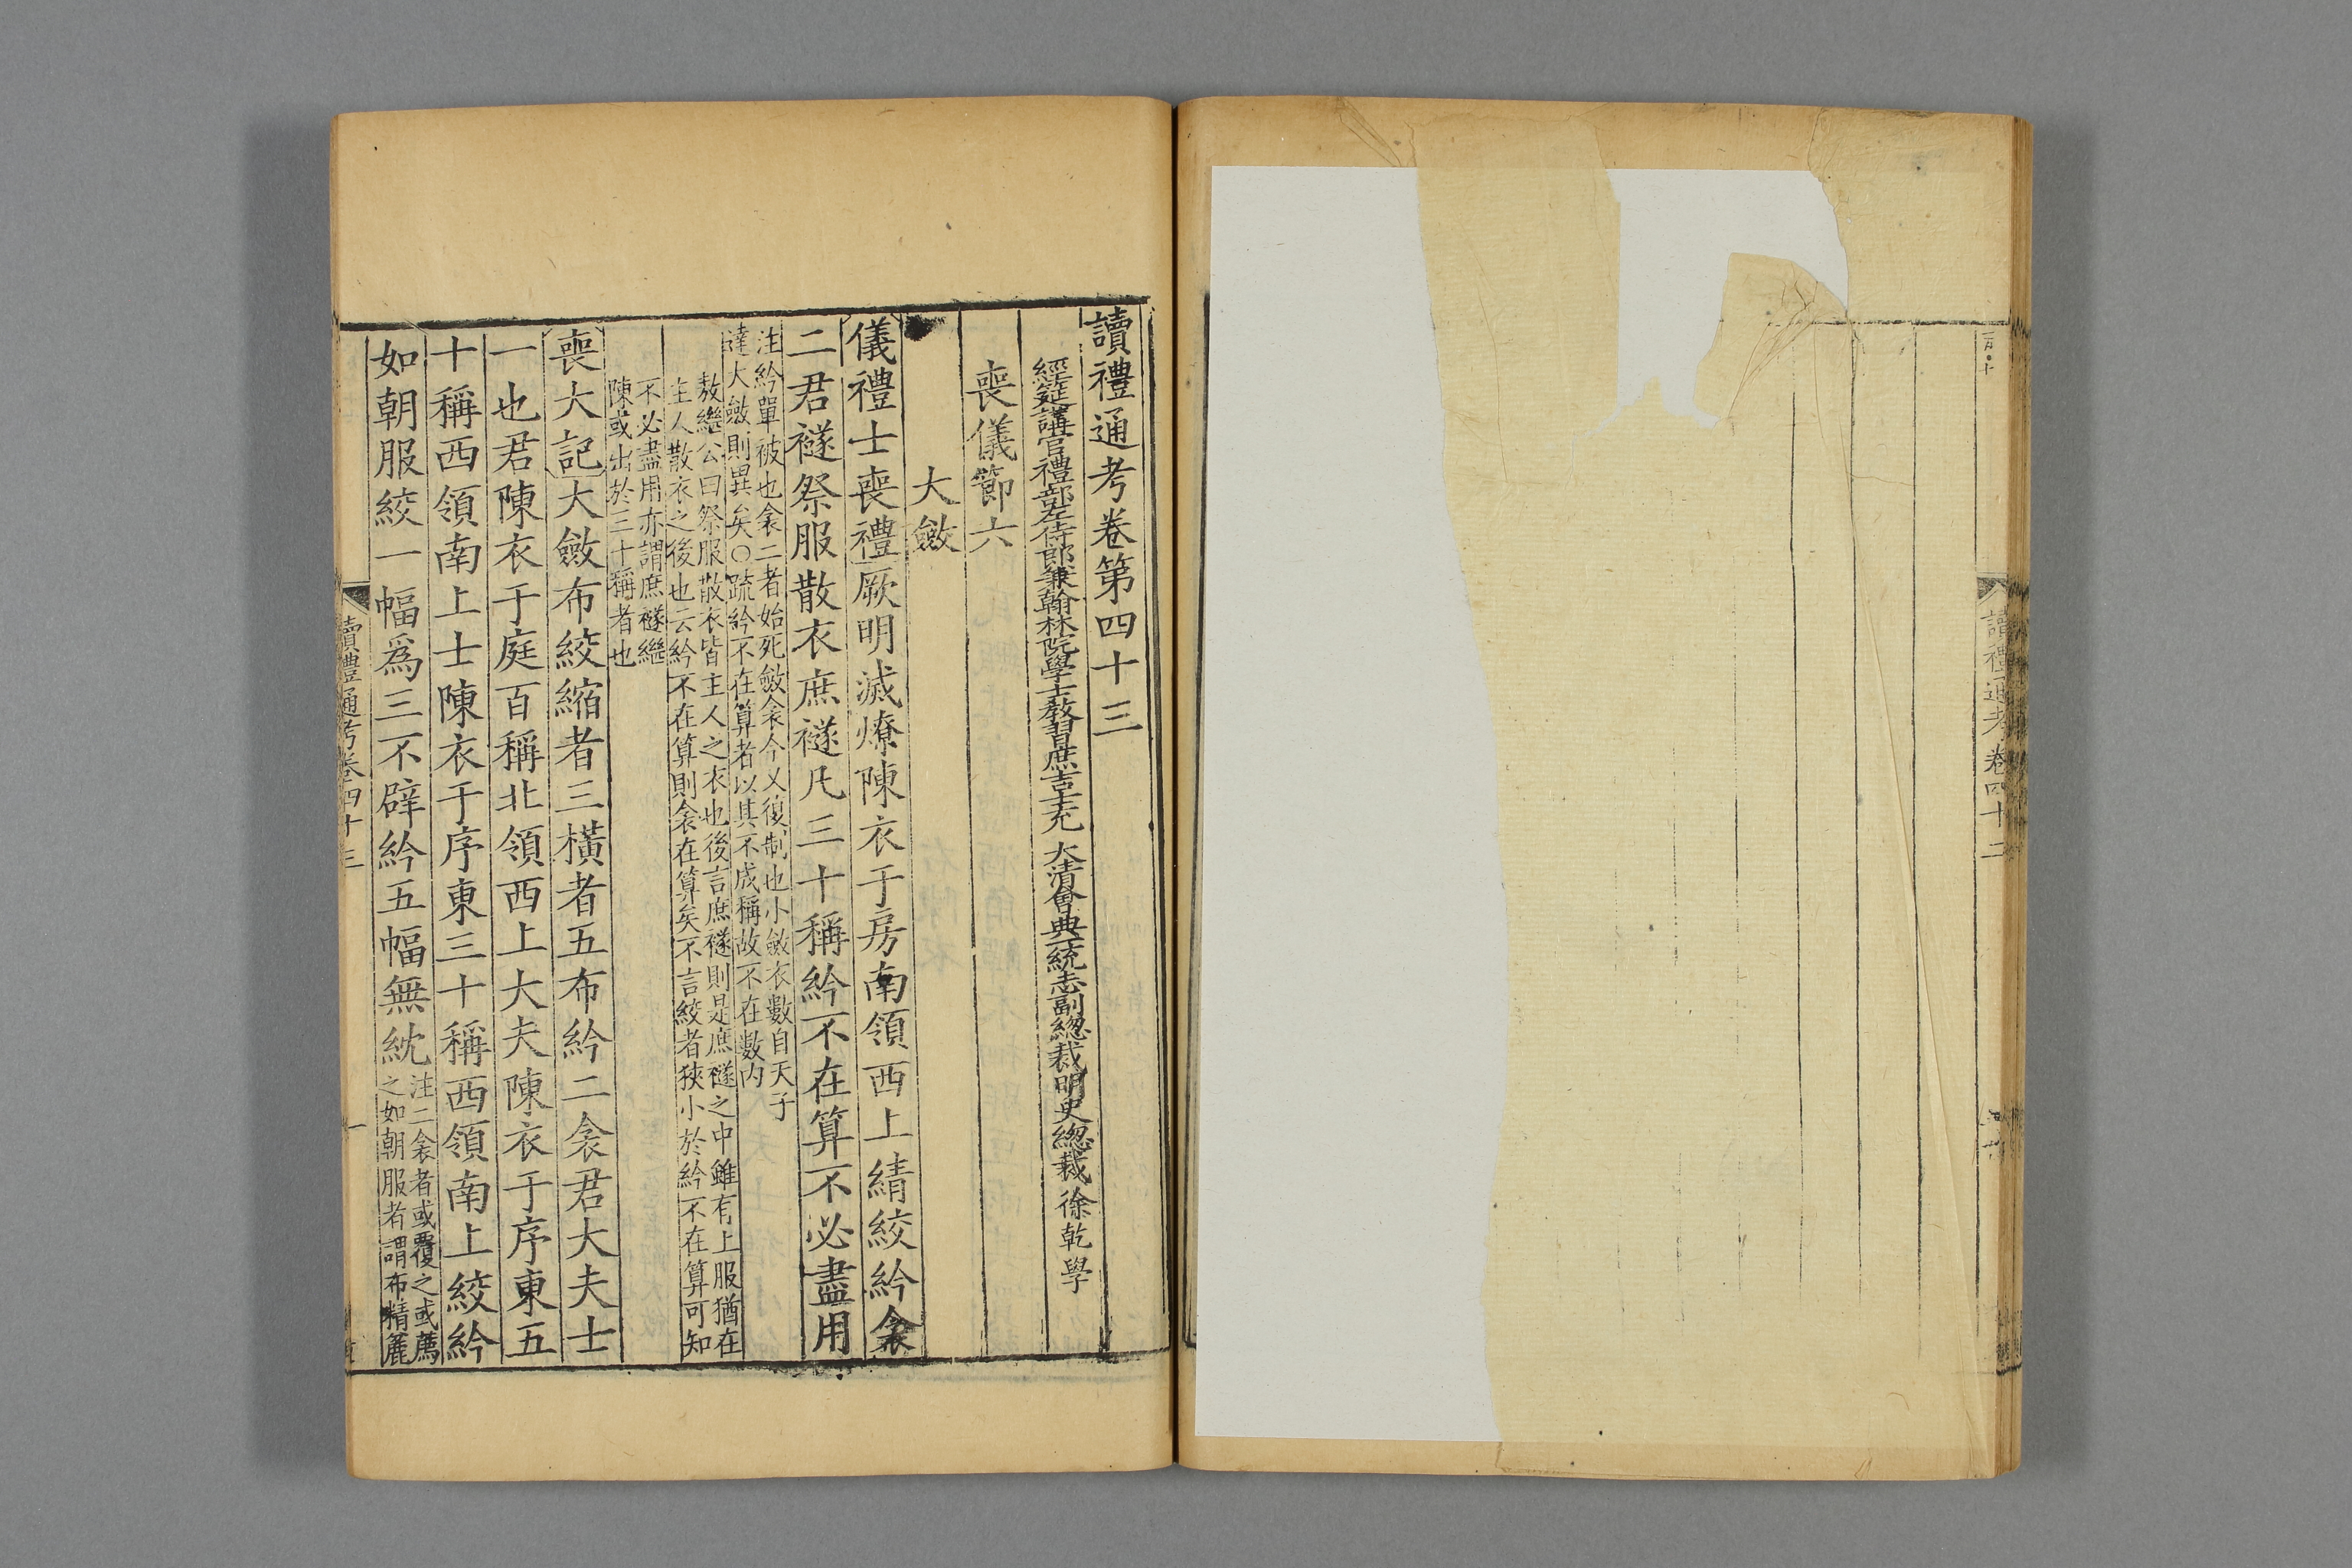 讀禮通考卷四十二
讀禮通考卷第四十三
經筵講官禮部左侍郎兼翰林院學士教習庶吉士充 大清會典一統志副總裁明史總裁 徐乾學
喪儀節六
大斂
儀禮士喪禮厥明滅燎陳衣于房南領西上綪絞紟衾
二君襚祭服散衣庶襚凡三十稱紟不在算不必盡用
注紟單被也衾二者始死斂衾今又復制也小斂衣數自天子
達大斂則異矣○疏紟不在算者以其不成稱故不在數内
敖繼公曰祭服散衣皆主人之衣也後言庶襚則是庶襚之中雖有上服猶在
主人散衣之後也云紟不在算則衾在算矣不言絞者狹小於紟不在算可知
不必盡用亦謂庶襚繼
陳或出於三十稱者也
喪大記大斂布絞縮者三橫者五布紟二衾君大夫士
一也君陳衣于庭百稱北領西上大夫陳衣于序東五
十稱西領南上士陳衣于序東三十稱西領南上絞紟
如朝服絞一幅爲三不辟紟五幅無紞
注二衾者或覆之或薦
之如朝服者謂布精麤
讀禮通考卷四十三
一